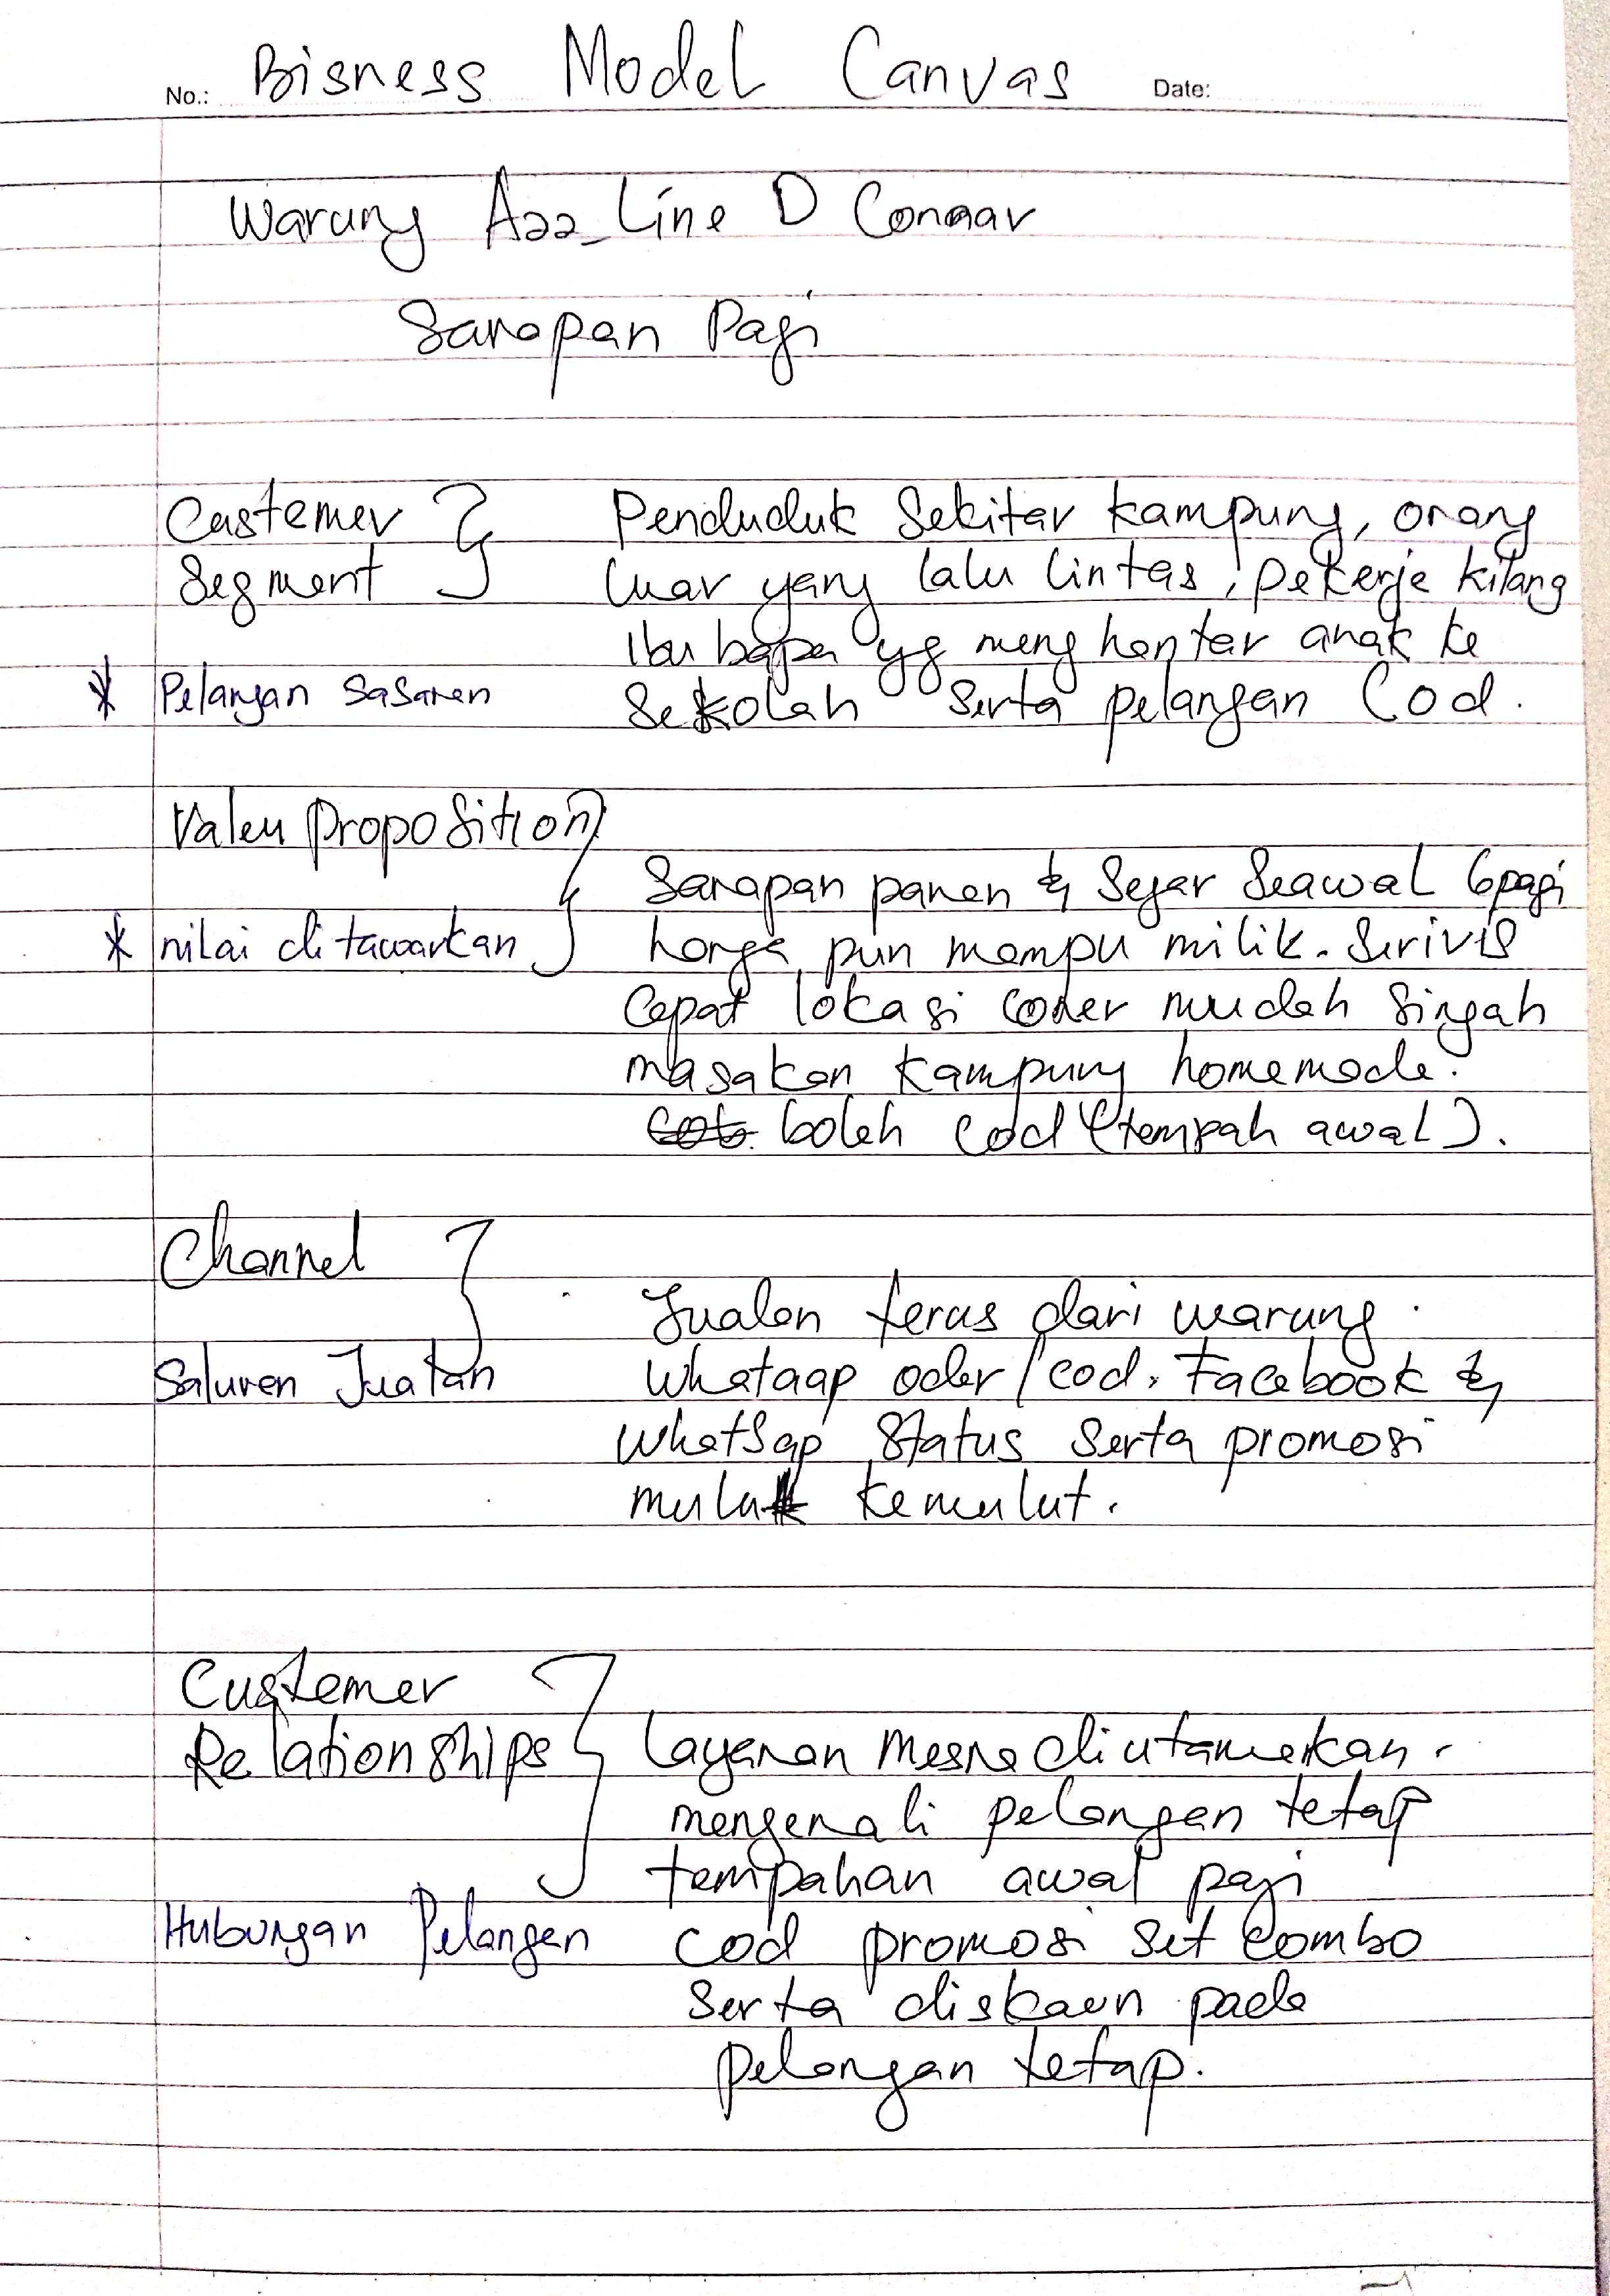 No.: Bisness Model Canvas Date:
Warung Azz_Line D Conaar
Sarapan Pagi
Castemer Penduduk Sekitar kampung, orang
Segment luar yang lalu lintas, pekerje kilang
ibu bapa yg menghantar anak ke
* Pelangan sasaran sekolah serta pelangan Cod.
Valeu proposition
Sarapan panan & Segar Seawal 6pagi
* nilai ditawarkan harga pun mampu milik. Serivis
Cepat lokasi coner mudah Singah
masakan kampung homemade.
boleh cod (tempah awal).
Channel
Jualan terus dari warung.
Saluran Jualan Whataap oder/cod. Facebook &
whatsap Status serta promosi
mulut kemulut.
Custemer
Relationships Layanan mesra diutamakan.
mengenali pelangan tetap
tempahan awal pagi
Hubungan Pelangan cod promosi set combo
serta diskaun pada
pelangan tetap.